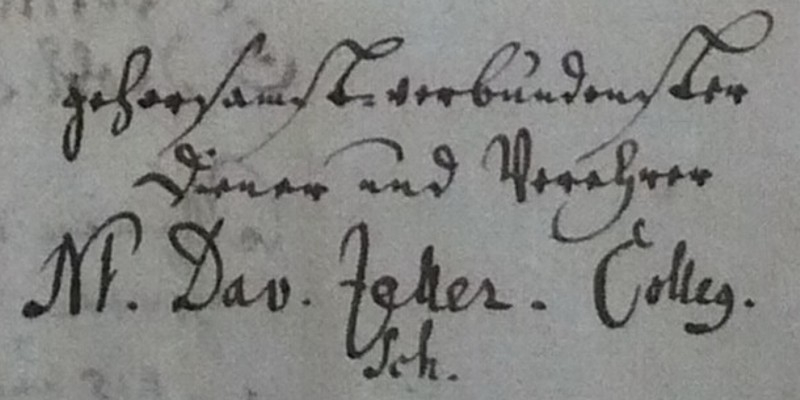 gehorsamst-verbundenster
Diener und Verehrer
M. Dav. Colleg.
Sch.